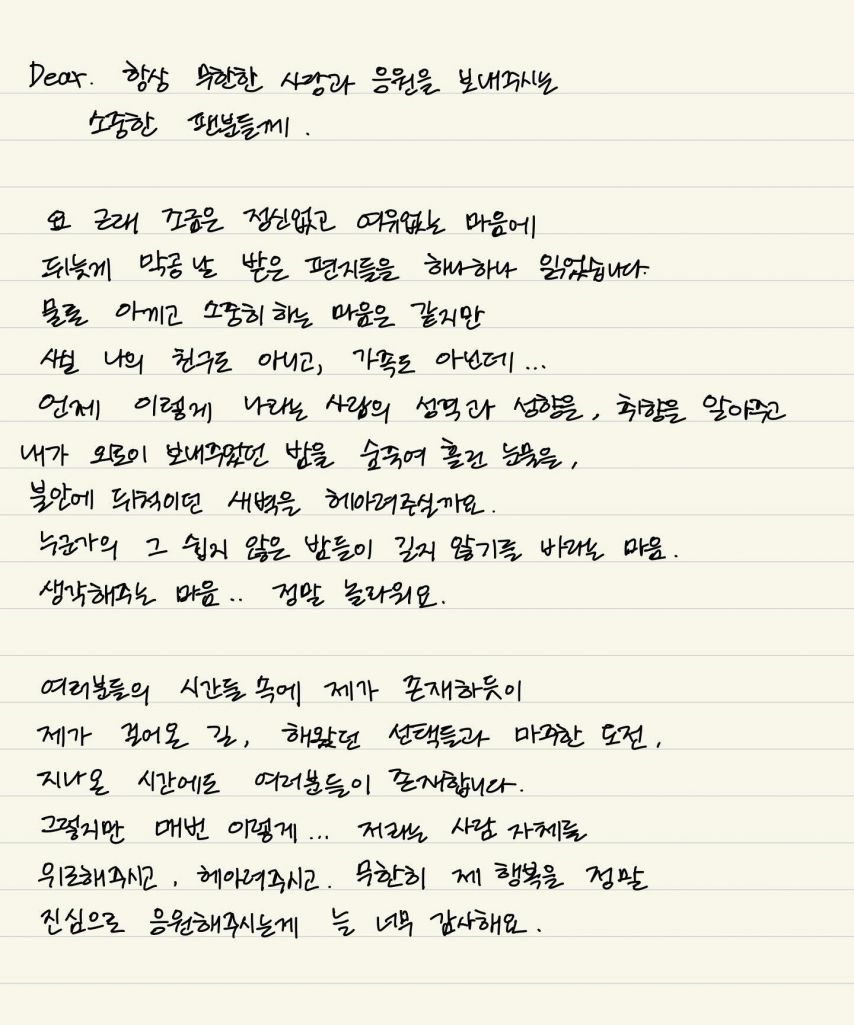 Dear. 항상 무한한 사랑과 응원을 보내주시는
소중한 팬분들께.
요 근래 조금은 정신없고 여유없는 마음에
뒤늦게 막공날 받은 편지들을 하나하나 읽었습니다.
물론 아끼고 소중히 하는 마음은 같지만
사실 나의 친구도 아니고, 가족도 아닌데...
언제 이렇게 나라는 사람의 성격과 성향을, 취향을 알아주고
내가 외로이 보내주었던 밤을 숨죽여 흘린 눈물을,
불안에 뒤척이던 새벽을 헤아려주실까요.
누군가의 그 쉽지 않은 밤들이 길지 않기를 바라는 마음.
생각해주는 마음.. 정말 놀라워요.
여러분들의 시간들 속에 제가 존재하듯이
제가 걸어온 길, 해왔던 선택들과 마주한 도전,
지나온 시간에도 여러분들이 존재합니다.
그렇지만 매번 이렇게... 저라는 사람 자체를
위로해주시고, 헤아려주시고. 무한히 제 행복을 정말
진심으로 응원해주시는게 늘 너무 감사해요.